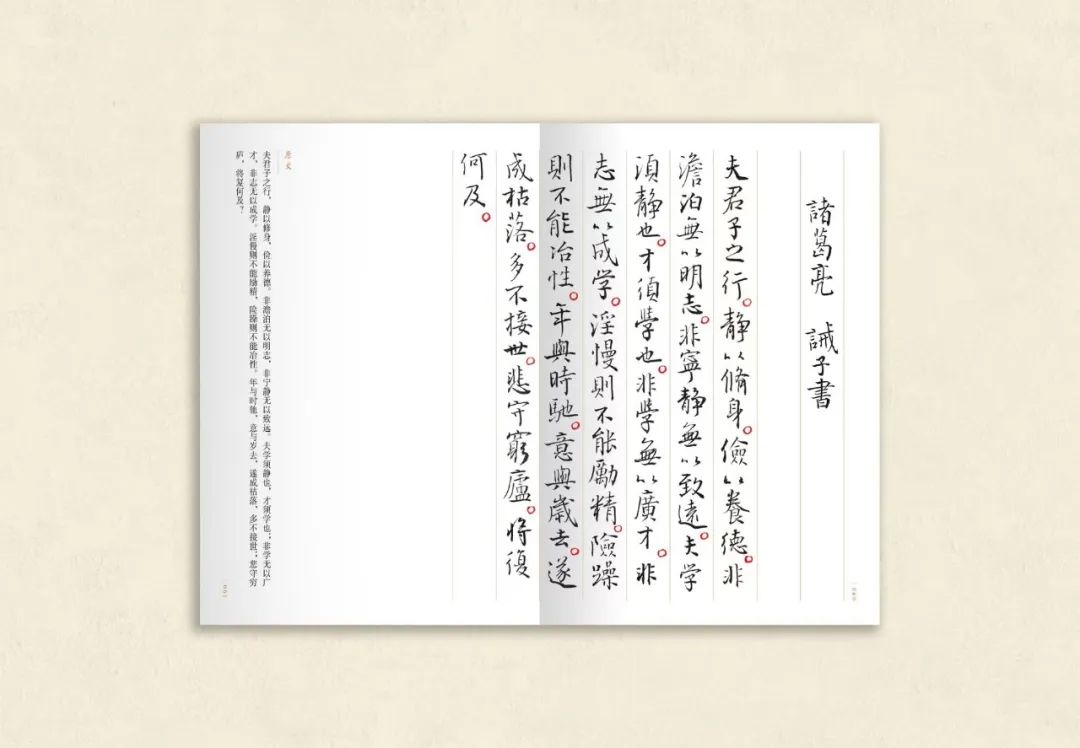 諸葛亮 誡子書
夫君子之行。靜以脩身。儉以養德。非
澹泊無以明志。非寧靜無以致遠。夫学
須靜也。才須學也。非學無以廣才。非
志無以成学。淫慢則不能勵精。險躁
則不能冶性。年與時馳。意與歲去。遂
成枯落。多不接世。悲守窮廬。将復
何及。
原文
夫君子之行，静以修身，俭以养德。非澹泊无以明志，非宁静无以致远。夫学须静也，才须学也；非学无以广
才，非志无以成学。淫慢则不能励精，险躁则不能冶性。年与时驰，意与岁去，遂成枯落，多不接世；悲守穷
庐，将复何及？